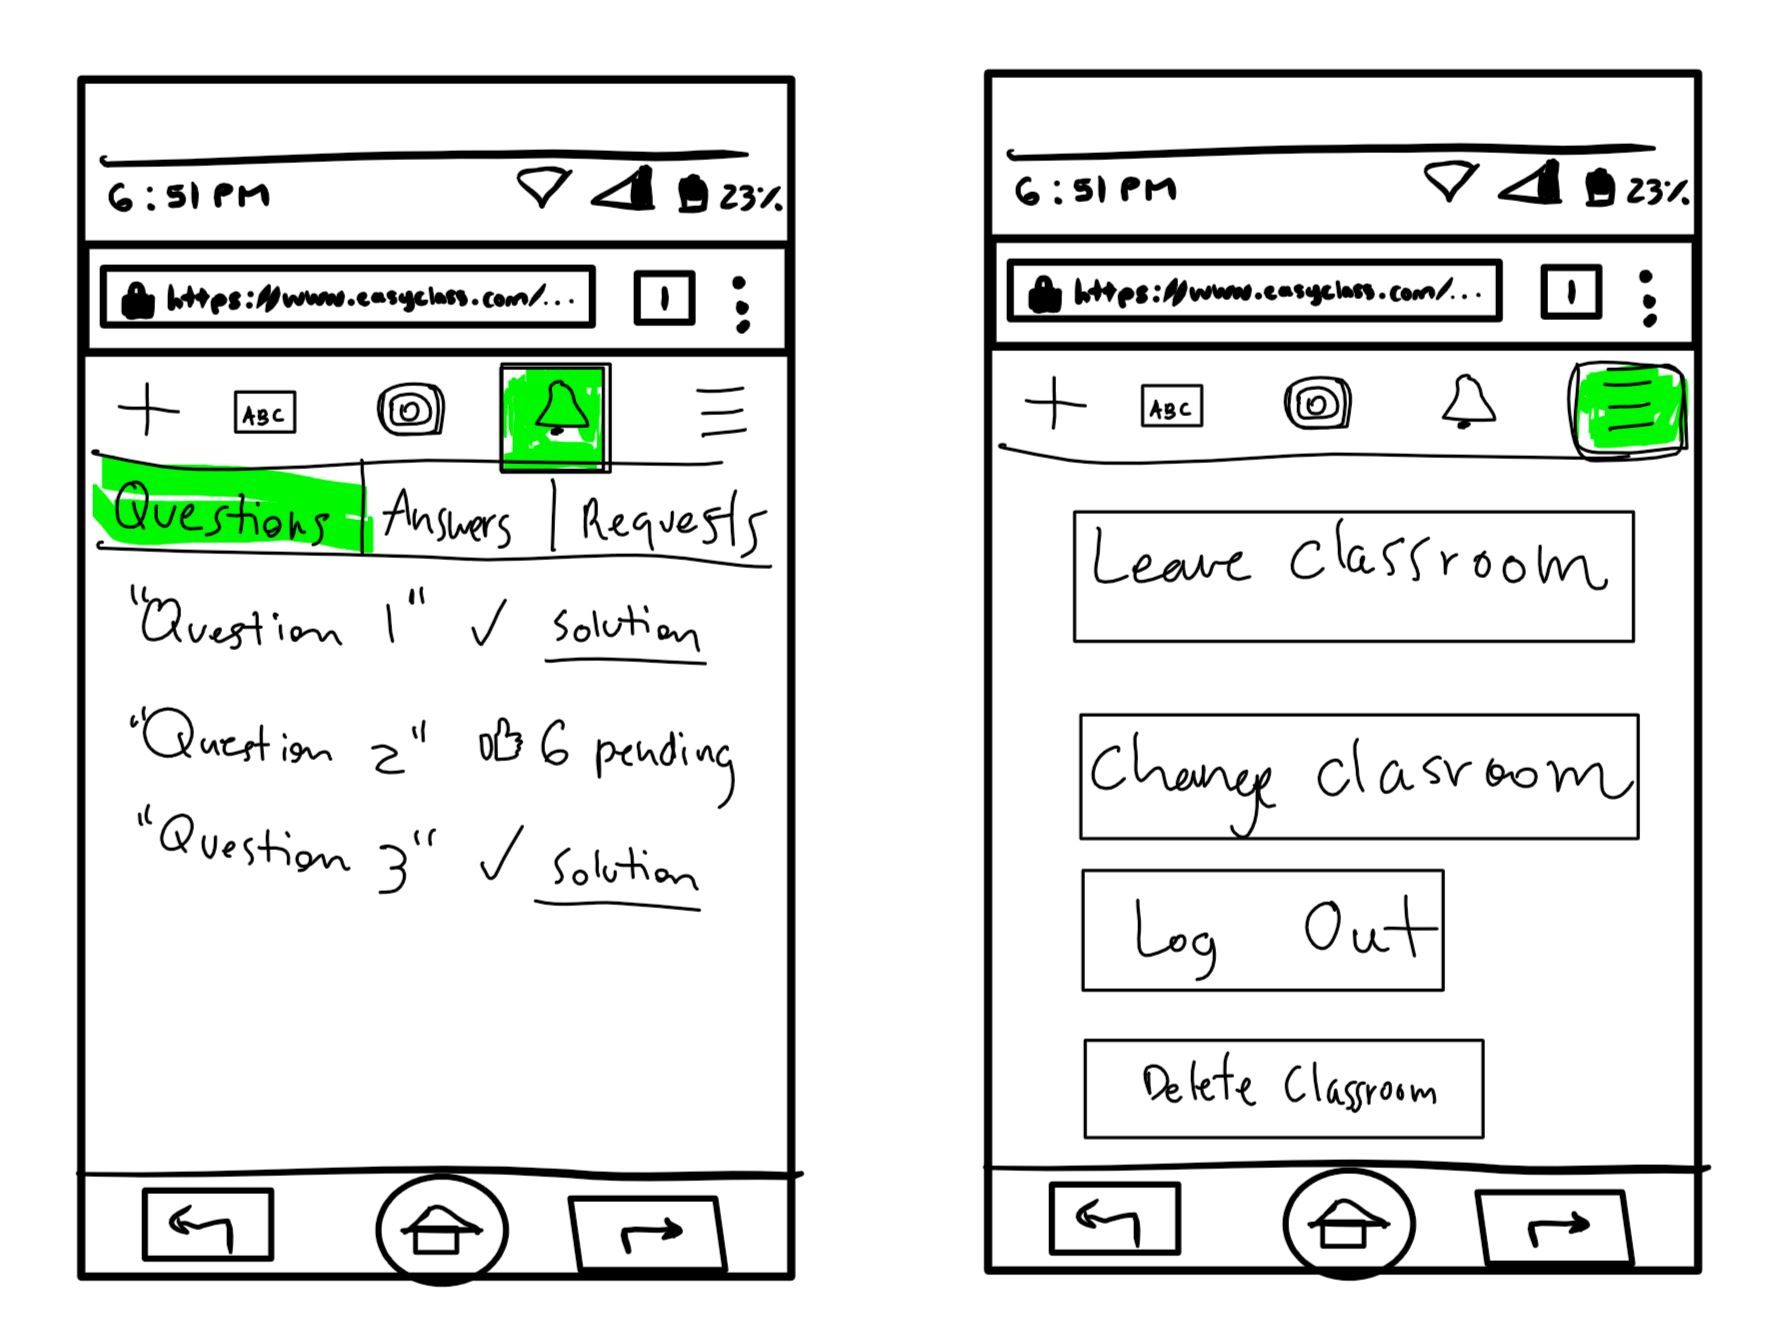 6:51 PM 23%
https://www.easyclass.com/... 1
ABC
Questions Answers Requests
"Question 1" ✓ solution
"Question 2" 6 pending
"Question 3" ✓ solution
6:51 PM 23%
https://www.easyclass.com/... 1
ABC
Leave classroom
Change clasroom
Log Out
Delete Classroom